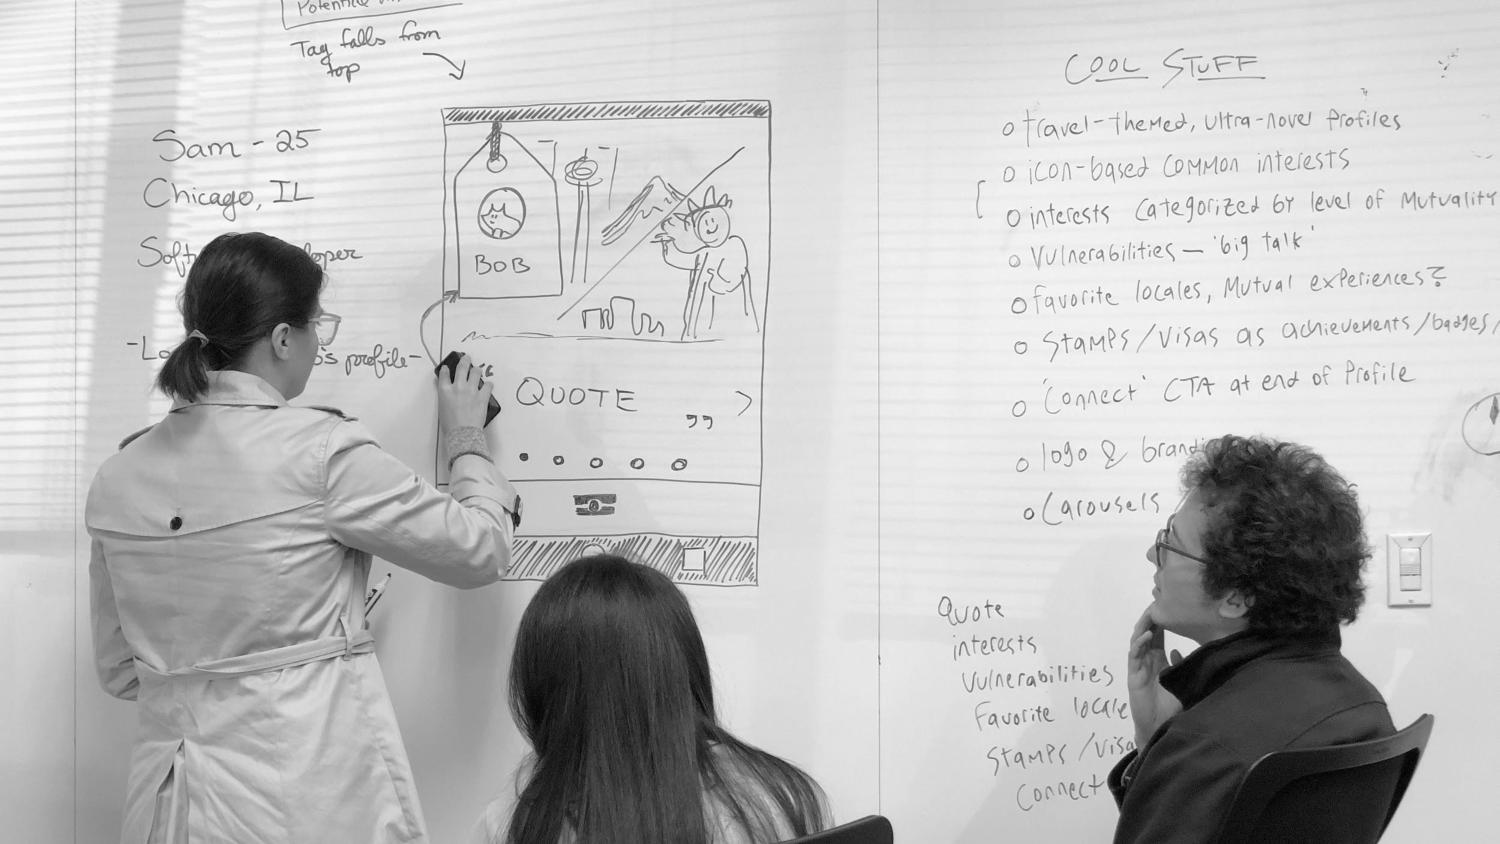 Potential
Tag falls from
top
Sam - 25
Chicago, IL
BOB
-Lo
's profile-
“ QUOTE ” >
COOL STUFF
o travel-themed, ultra-novel profiles
o icon-based common interests
o interests categorized by level of mutuality
o Vulnerabilities — 'big talk'
o favorite locales, mutual experiences?
o Stamps/Visas as achievements/badges/
o 'Connect' CTA at end of profile
o logo & brandi
o Carousels
Quote
interests
Vulnerabilities
Favorite locale
Stamps/Visa
Connect